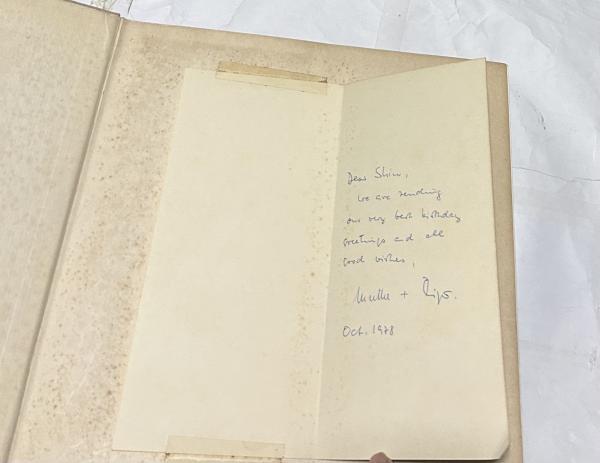 Dear Shiw,
We are sending
our very best birthday
greetings and all
good wishes,
+
Oct. 1978